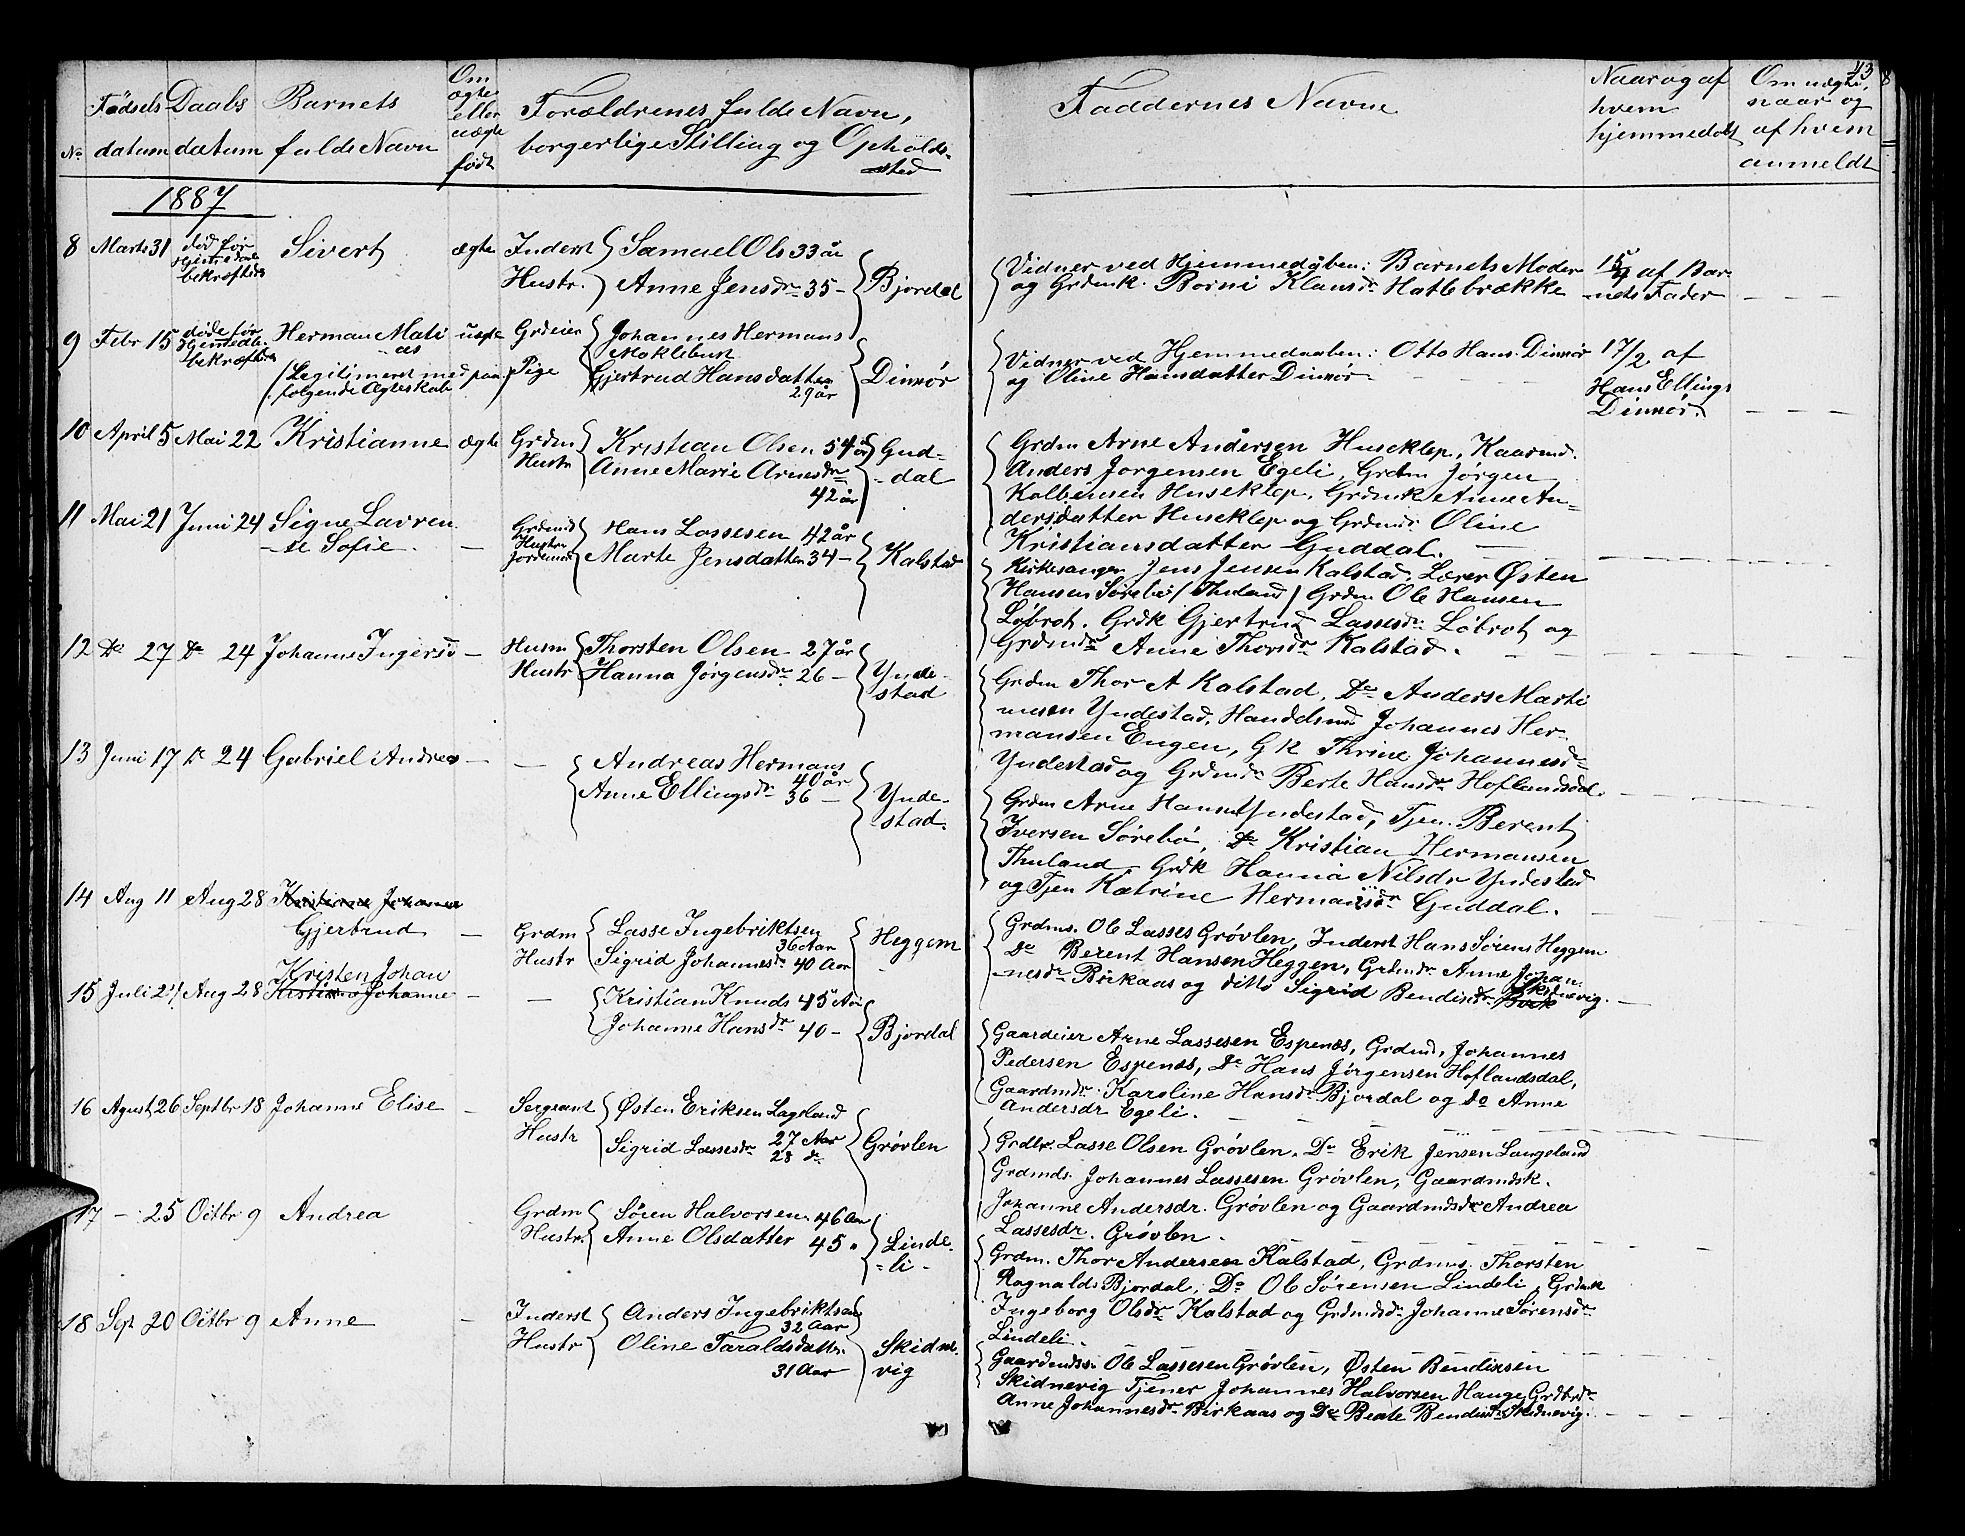 43
No Fødsels datum Daabs datum Barnets fulde Navn Om ægte eller uægte født Forældrenes fulde Navn, borgerlige Stilling og Opholdssted Faddernes Navne Naar og af hvem hjemmedøbt Om uægte, naar og af hvem anmeldt
1887
8 Marts 31 død før hjemmedaab bekræftedes Sivert ægte Inderst Samuel Ols 33 år
Hustr. Anne Jensdr 35 - Bjordal
Vidner ved Hjemmedåben: Barnets Moder
og Grdmk. Borni Klausdr Hatlebrække
15/4 af Bar-
nets Fader
9 Febr 15 døde før Hjemmedb. bekræftedes Herman Mati
as uægte Grdeier Johannes Hermans
Moklebust
(Legitimeret med paa
følgende Ægteskab Pige Gjertrud Hansdatter
29 år Dinnör
Vidner ved Hjemmedaaben: Otto Hans. Dinnör
og Oline Hansdatter Dinnör.
17/2 af
Hans Ellings
Dinnör.
10 April 5 Mai 22 Kristianne ægte Grdm Kristian Olsen 54 år
Hustr Anne Marie Arnesdr
42 år Gud-
dal
Grdm Arne Andersen Huseklep, Kaarmd.
Anders Jorgensen Egeli, Grdm Jørgen
Kolbensen Huseklep, Grdmk Anne An-
dersdatter Huseklep og Grdmdr Oline
Kristiansdatter Guddal.
11 Mai 21 Juni 24 Signe Lavren
se Sofie - Grdmd Hans Lassesen 42 år
Hustru
Jordmor Marte Jensdatter 34 - Kalstad
Kirkesanger Jens Jensen Kalstad, Lærer Østen
Hansen Sörebö (Thuland) Grdm Ole Hansen
Löbrot. Grdk Gjertrud Lassesdr Löbrot og
Grdmdr Anne Thorsdr Kalstad.
12 Do 27 Do 24 Johanne Ingersd - Husm Thorsten Olsen 27 år
Hustr Hanna Jørgensdr 26 - Ynde-
stad
Grdm Thor A Kalstad, Do Anders Marti
nusen Yndestad, Handelsmd Johannes Her-
mansen Engen, GK Thrine Johannesd
Yndestad og Grdmdr Berte Hansdr Hoflandsdal.
13 Juni 17 Do 24 Gabriel Andreas - - Andreas Hermans
40 år
Anne Ellingsdr 36 - Ynde-
stad.
Grdm Arne Hansen Yndestad, Tjen. Berent
Iversen Sørebö, Do Kristian Hermansen
Thuland Grdk Hanna Nilsdr Yndestad
og Tjen Katrine Hermansdr Guddal.
14 Aug 11 Aug 28 Kristianne Johanne
Gjertrud - Grdm Lasse Ingebriktsen
36 Aar
Hustr Sigrid Johannesdr 40 Aar Heggem
Grdms. Ole Lasses Grövlen, Inderst Hans Sörens Heggem
Do Berent Hansen Heggen, Grdmdr Anne Johan
nesdr Birkaas og ditto Sigrid Bendiksdr Skidnevig.
15 Juli 21 Aug 28 Kristen Johan
Kristiane Johanne - - Kristian Knuds 45 Aar
Johanne Hansdr 40 - Bjordal
Gaardeier Arne Lassesen Espenæs, Grdmd, Johannes
Pedersen Espenæs, Do Hans Jörgensen Hoflandsdal,
Gaardmdr. Karoline Hansdr Bjordal og Do Anne
Andersdr Egeli.
16 Agust 26 Septbr 18 Johanne Elise - Sergeant Østen Eriksen Lageland
27 Aar
Hustr Sigrid Lassesdr 28 do Grövlen
Grdbr. Lasse Olsen Grövlen. Do Erik Jensen Langeland
Grdmds. Johannes Lassesen Grövlen, Gaardmdsk.
Johanne Andersdr. Grövlen og Gaardmdsdr Andrea
Lassesdr. Grövlen.
17 - 25 Octbr 9 Andrea Grdm Sören Halvorsen. 46 Aar
Hustr. Anne Olsdatter 45 " Linde-
li
Grdm. Thor Andersen Kalstad, Grdms. Thorsten
Ragnalds Bjordal, Do Ole Sörensen Lindeli, Grdmk
Ingeborg Olsdr Kalstad og Grdmdsdr Johanne Sörensdr
Lindeli.
18 Sept 20 Octbr 9 Anne - Inderst Anders Ingebriktsen
32 Aar
Hustr Oline Taraldsdatter.
31 Aar Skidne-
vig
Gaardmdss. Ole Lassesen Grövlen, Østen Bendiksen
Skidnevig Tjener Johannes Halvorsen Hauge, Grdbrdr
Anne Johannesdr Birkaas og Do Beate Bendiksdr Skidnevig.